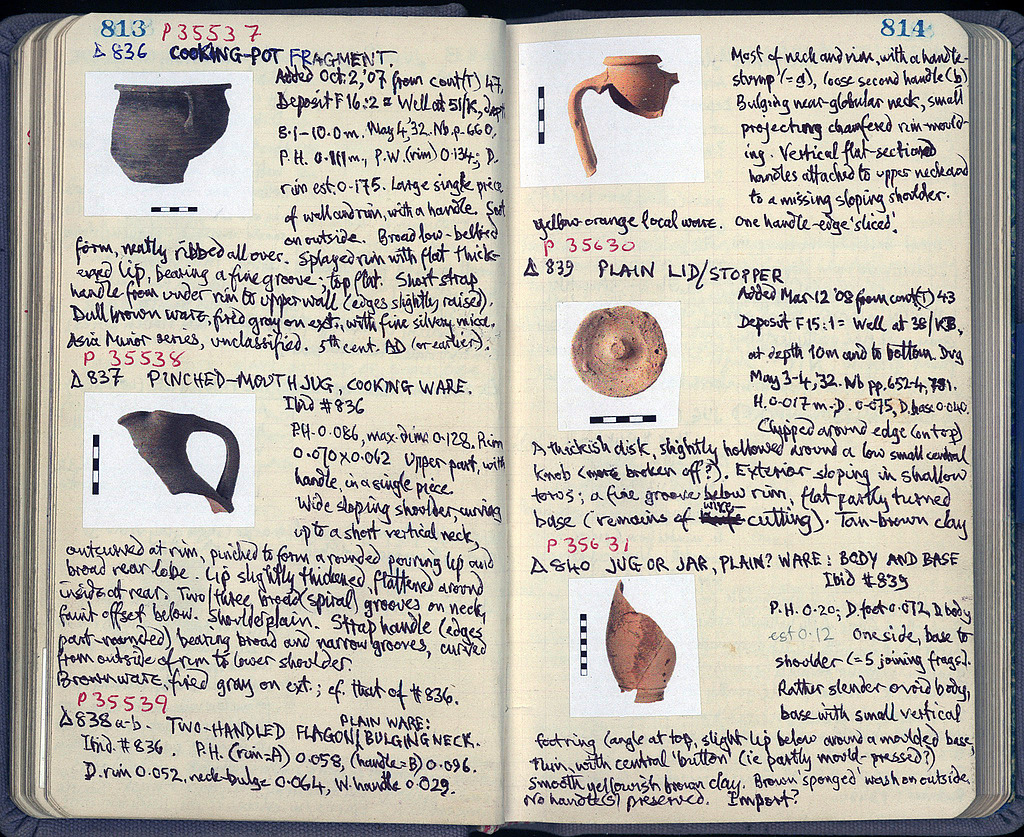 813 P 35537
Δ 836 COOKING-POT FRAGMENT.
Added Oct. 2, '07 from cont(T) 47,
Deposit F 16:2 = Well at 51/K, depth
8.1-10.0 m. May 4, '32. Nb. p. 660.
P.H. 0.111 m., P.W. (rim) 0.134; D.
rim est. 0.175. Large single piece
of wall and rim, with a handle. Soot
on outside. Broad low-bellied
form, neatly ribbed all over. Splayed rim with flat thick-
ened lip, bearing a fine groove; top flat. Short strap
handle from under rim to upper wall (edges slightly raised).
Dull brown ware, fired gray on ext., with fine silvery mica.
Asia Minor series, unclassified. 5th cent. AD (or earlier).
P 35538
Δ 837 PINCHED-MOUTH JUG, COOKING WARE.
Ibid #836
P.H. 0.086, max. dim. 0.128. Rim
0.070 x 0.062 Upper part, with
handle, in a single piece.
Wide sloping shoulder, curving
up to a short vertical neck,
outcurved at rim, pinched to form a rounded pouring lip and
broad rear lobe. Lip slightly thickened, flattened around
inside at rear. Two/three broad (spiral) grooves on neck,
faint offset below. Shoulder plain. Strap handle (edges
part-rounded) bearing broad and narrow grooves, curved
from outside of rim to lower shoulder.
Brown ware, fired gray on ext.; cf. that of #836.
P 35539
Δ 838 a-b. TWO-HANDLED FLAGON, PLAIN WARE: BULGING NECK.
Ibid. #836. P.H. (rim=A) 0.058, (handle=B) 0.096.
D. rim 0.052, neck-bulge 0.064, W. handle 0.029.
814
Most of neck and rim, with a handle-
stump (=a), loose second handle (b)
Bulging near-globular neck, small
projecting chamfered rim-mould-
ing. Vertical flat-sectioned
handles attached to upper neck and
to a missing sloping shoulder.
yellow-orange local ware. One handle-edge 'sliced'.
P 35630
Δ 839 PLAIN LID/STOPPER
Added Mar 12 '08 from cont(T) 43
Deposit F 15:1 = Well at 38/KB,
at depth 10m and to bottom. Dug
May 3-4, '32. Nb pp. 652-4, 781.
H. 0.017 m. D. 0.075, D. base 0.040.
Chipped around edge (on top)
A thickish disk, slightly hollowed around a low small central
knob (more broken off?). Exterior sloping in shallow
torus; a fine groove below rim, flat partly turned
base (remains of wire cutting). Tan-brown clay
P 35631
Δ 840 JUG OR JAR, PLAIN? WARE: BODY AND BASE
Ibid #839
P.H. 0.20; D. foot 0.072, D. body
est 0.12 One side, base to
shoulder (=5 joining frags).
Rather slender ovoid body,
base with small vertical
footring (angle at top, slight lip below around a moulded base,
thin, with central 'button' (ie partly mould-pressed?)
Smooth yellowish brown clay. Brown 'sponged' wash on outside.
No handle(s) preserved. Import?